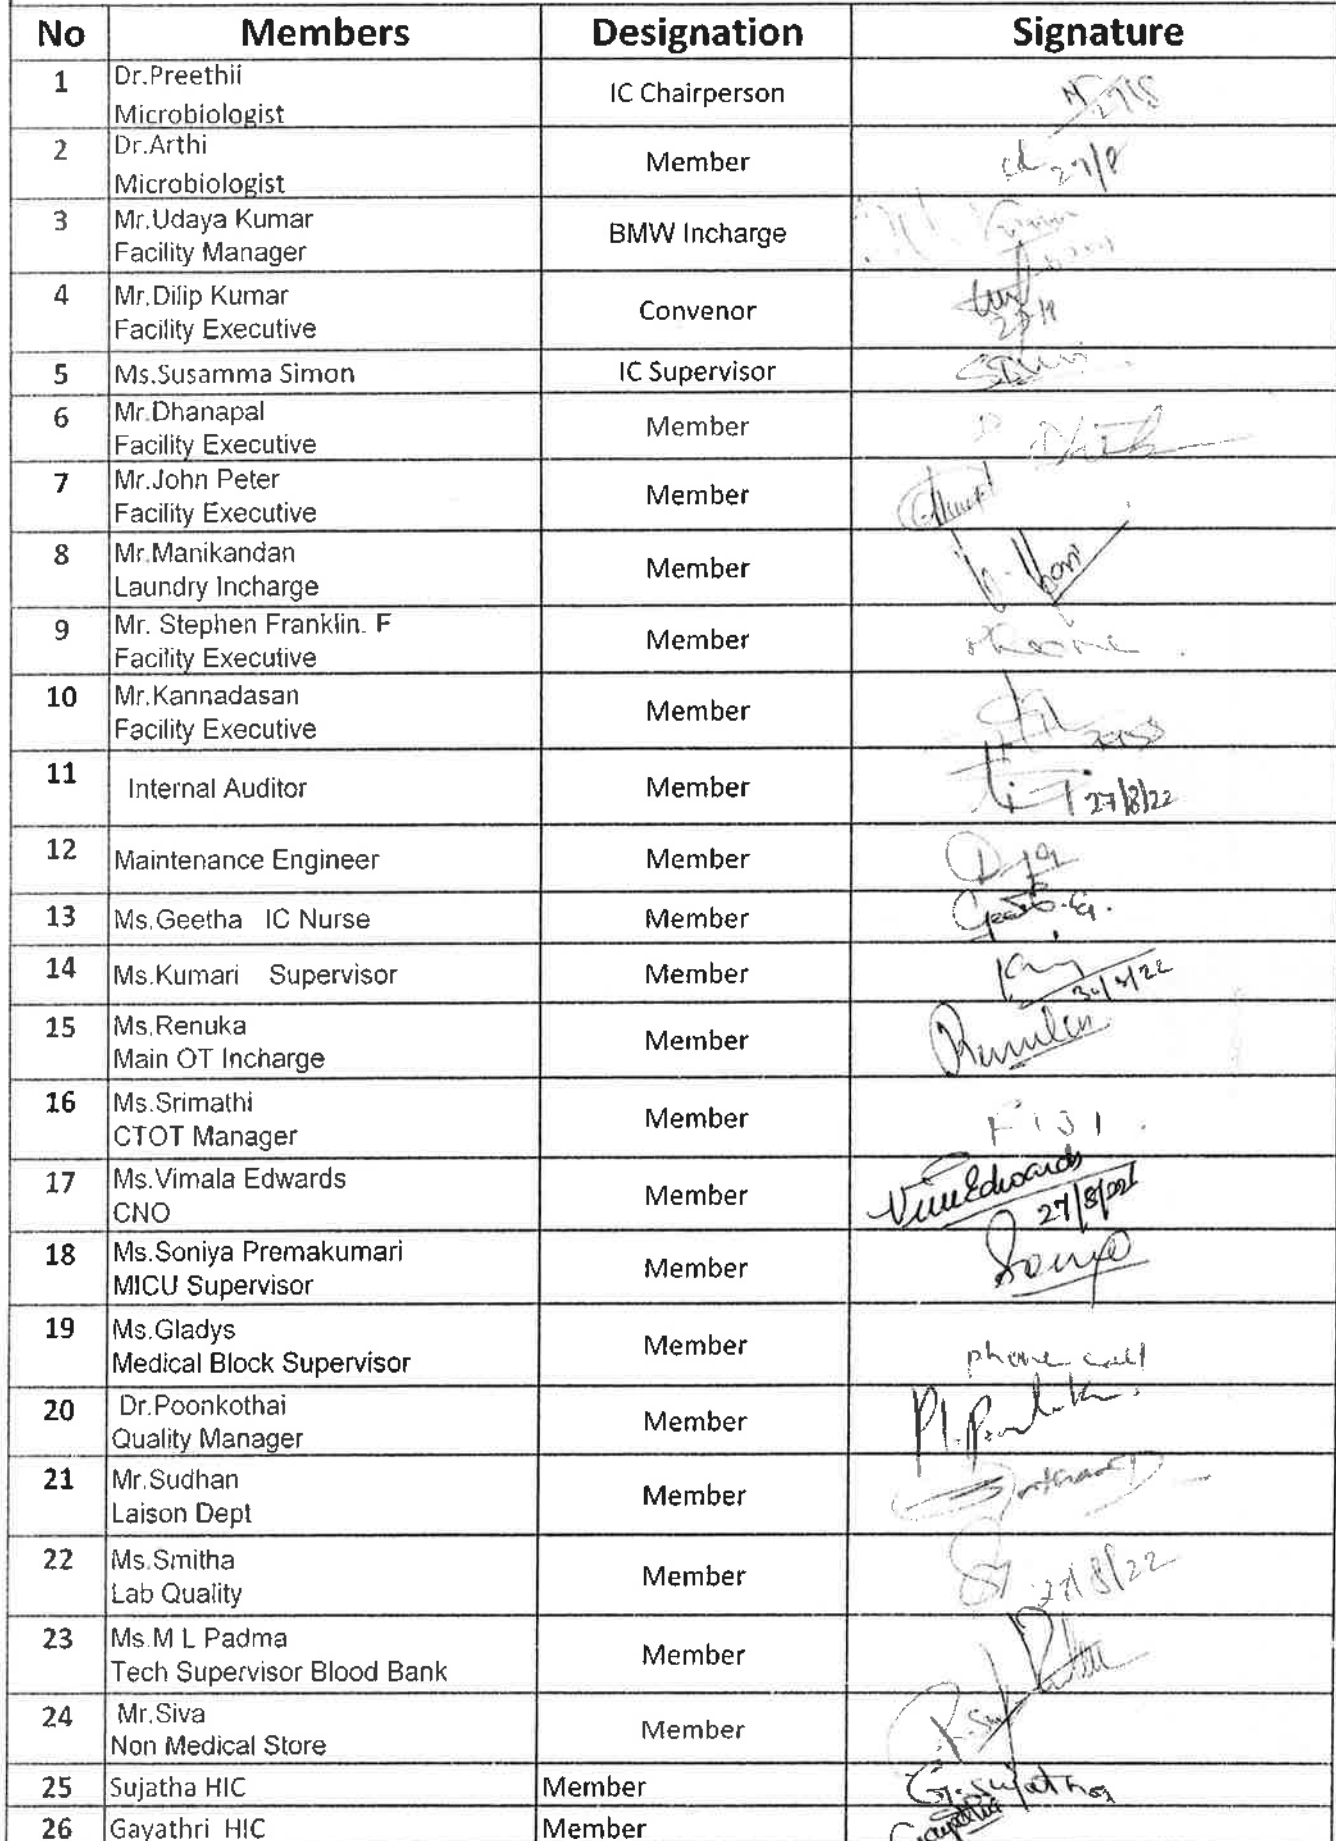 No Members Designation Signature
1 Dr.Preethii
Microbiologist
IC Chairperson
2 Dr.Arthi
Microbiologist
Member
27/8
3 Mr.Udaya Kumar
Facility Manager
BMW Incharge
4 Mr.Dilip Kumar
Facility Executive
Convenor
5 Ms.Susamma Simon IC Supervisor
6 Mr.Dhanapal
Facility Executive
Member
7 Mr.John Peter
Facility Executive
Member
8 Mr.Manikandan
Laundry Incharge
Member
9 Mr. Stephen Franklin. F
Facility Executive
Member
10 Mr.Kannadasan
Facility Executive
Member
11 Internal Auditor Member 27/8/22
12 Maintenance Engineer Member
13 Ms.Geetha IC Nurse Member
14 Ms.Kumari Supervisor Member
15 Ms.Renuka
Main OT Incharge
Member
16 Ms.Srimathi
CTOT Manager
Member
17 Ms.Vimala Edwards
CNO
Member
Edwards
27/8/22
18 Ms.Soniya Premakumari
MICU Supervisor
Member
19 Ms.Gladys
Medical Block Supervisor
Member
phone call
20 Dr.Poonkothai
Quality Manager
Member
21 Mr.Sudhan
Laison Dept
Member
22 Ms.Smitha
Lab Quality
Member
27/8/22
23 Ms.M L Padma
Tech Supervisor Blood Bank
Member
24 Mr.Siva
Non Medical Store
Member
25 Sujatha HIC Member G.Sujatha
26 Gayathri HIC Member